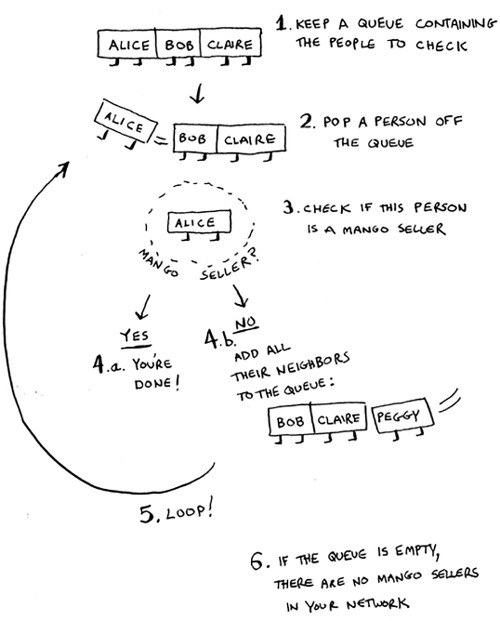 ALICE BOB CLAIRE
1. KEEP A QUEUE CONTAINING
THE PEOPLE TO CHECK
ALICE
BOB CLAIRE
2. POP A PERSON OFF
THE QUEUE
ALICE
MANGO SELLER?
3. CHECK IF THIS PERSON
IS A MANGO SELLER
YES
4.a. YOU'RE
DONE!
NO
4.b.
ADD ALL
THEIR NEIGHBORS
TO THE QUEUE:
BOB CLAIRE PEGGY
5. LOOP!
6. IF THE QUEUE IS EMPTY,
THERE ARE NO MANGO SELLERS
IN YOUR NETWORK